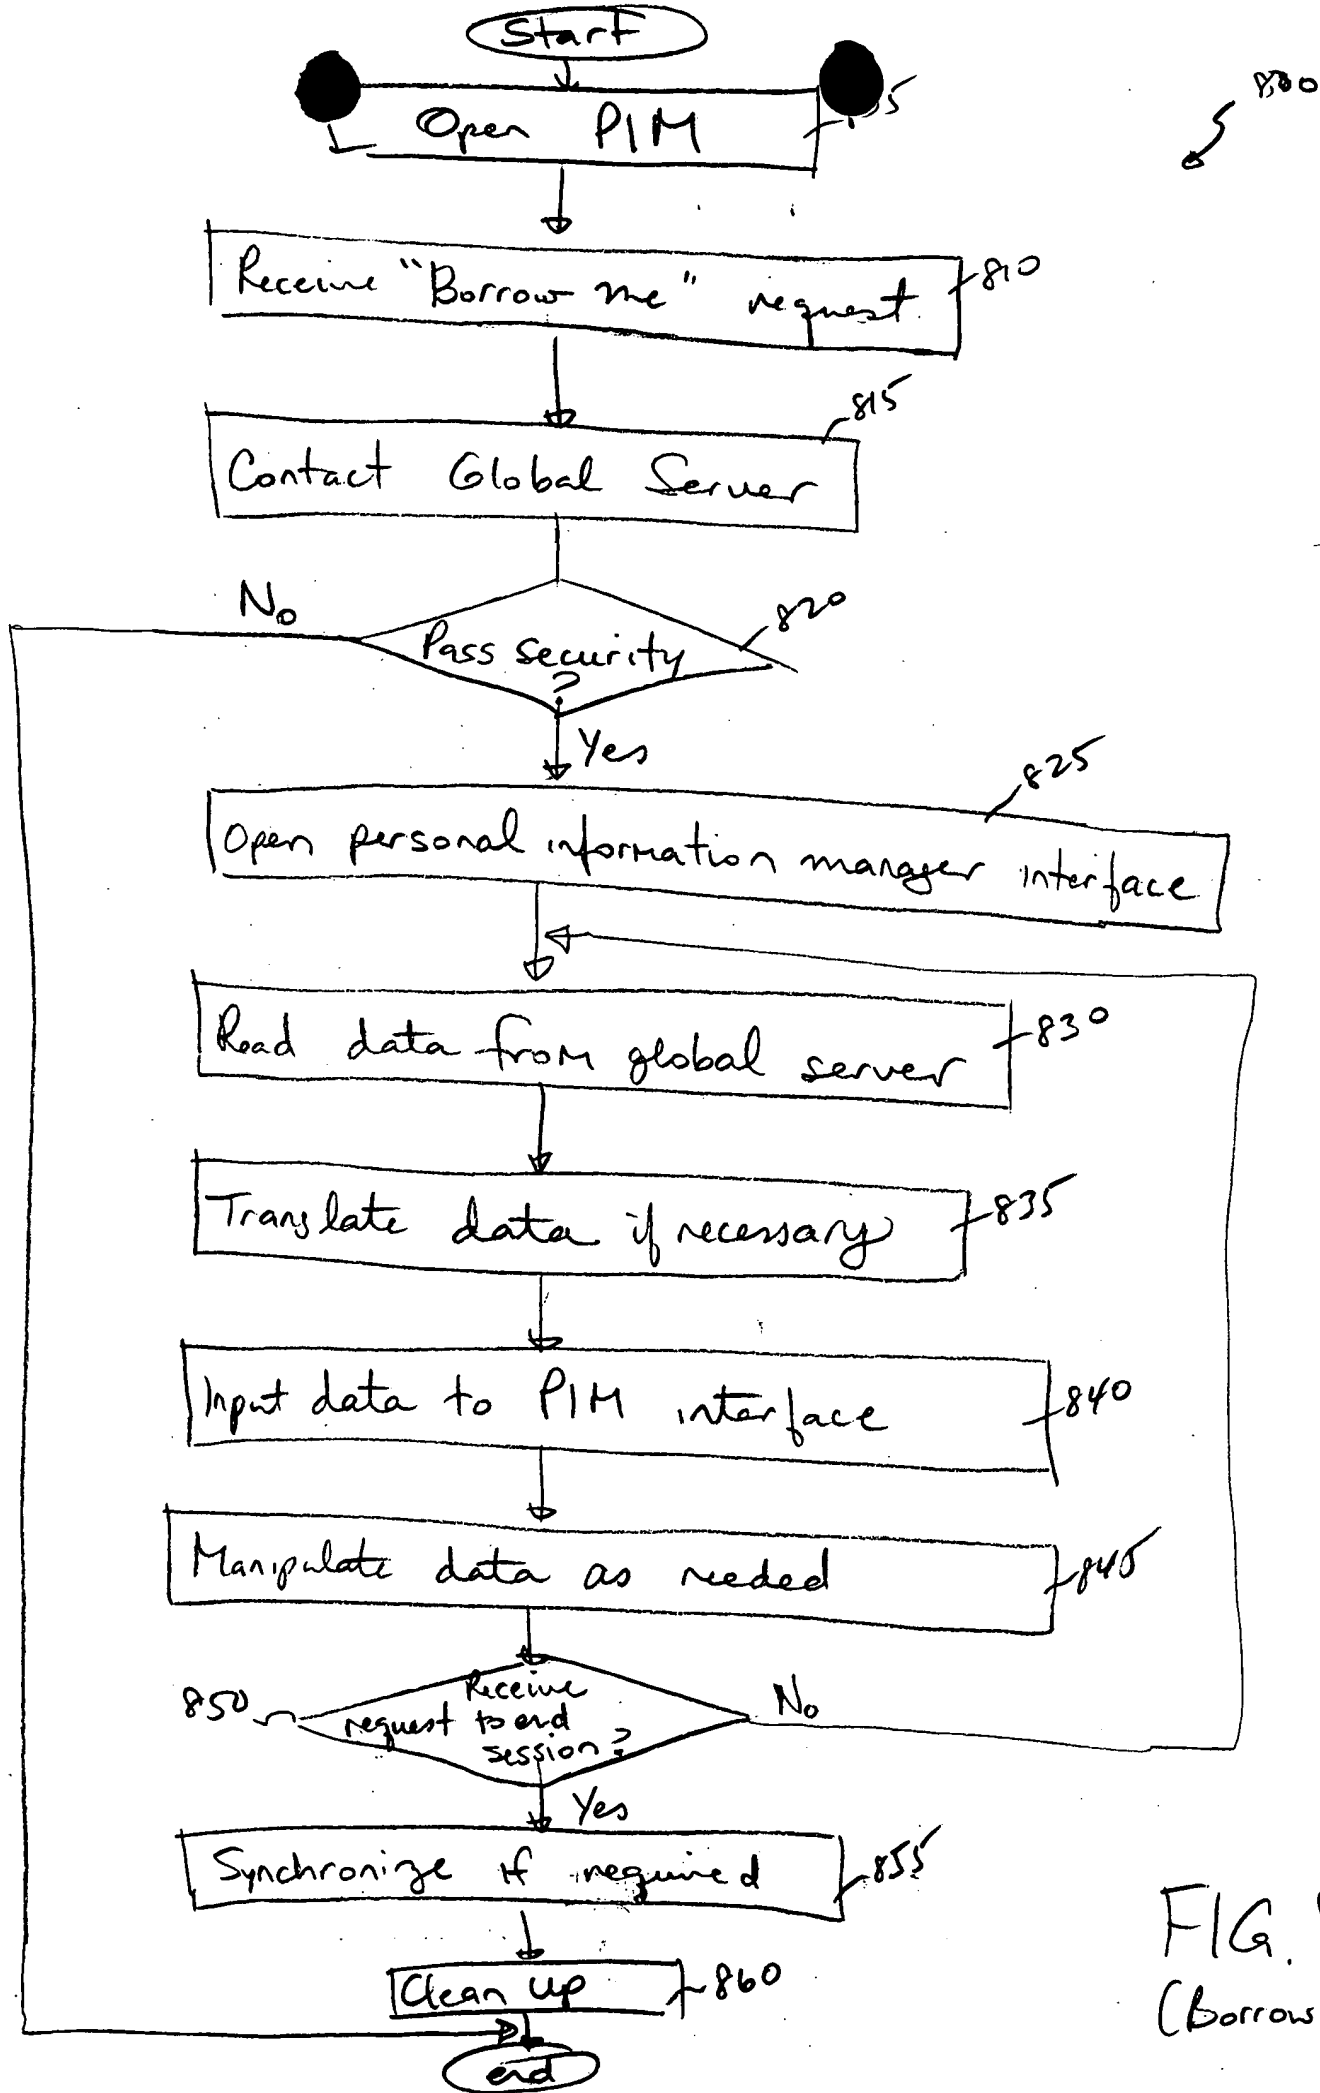 Start
800
Open PIM
5
Receive "Borrow me" request
810
815
Contact Global Server
No
820
Pass security
?
Yes
825
Open personal information manager interface
Read data from global server
830
Translate data if necessary
835
Input data to PIM interface
840
Manipulate data as needed
845
850
Receive
request to end
session?
No
Yes
Synchronize if required
855
Clean up
860
end
FIG.
(Borrow